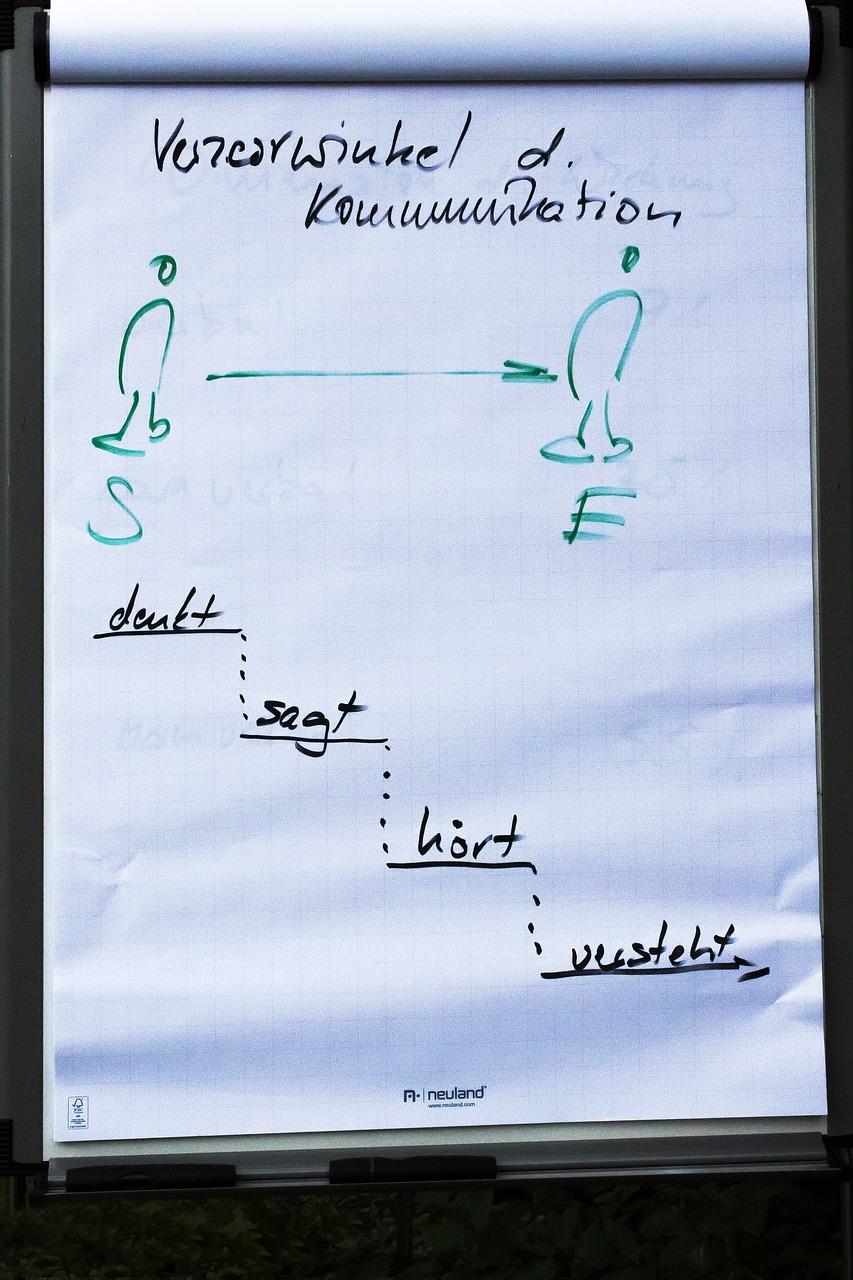 Verzerrwinkel d.
Kommunikation
S
E
denkt
sagt
hört
versteht
neuland
www.neuland.com
FSC